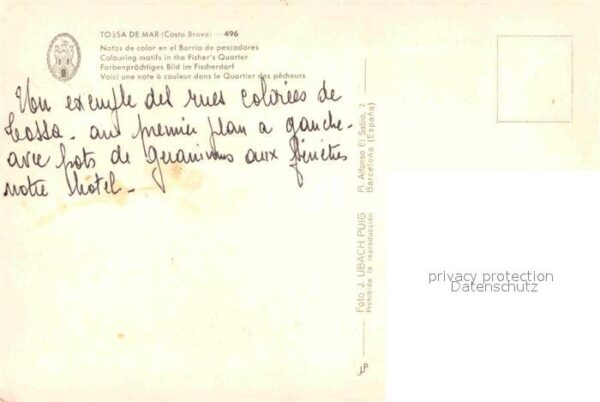 TOSSA DE MAR (Costa Brava) - 496
Notas de color en el Barrio de pescadores
Colouring motifs in the Fisher's Quarter
Farbenprächtiges Bild im Fischerdorf
Voici une note à couleur dans le Quartier des pêcheurs
Un exemple del rues colorées de
Tossa - au premier plan a gauche -
avec pots de geraniums aux fenêtres
notre hotel -
Pl. Alfonso El Sabio, 7
Barcelona (España)
Foto J. UBACH PUIG
Prohibida la reproducción
privacy protection
Datenschutz